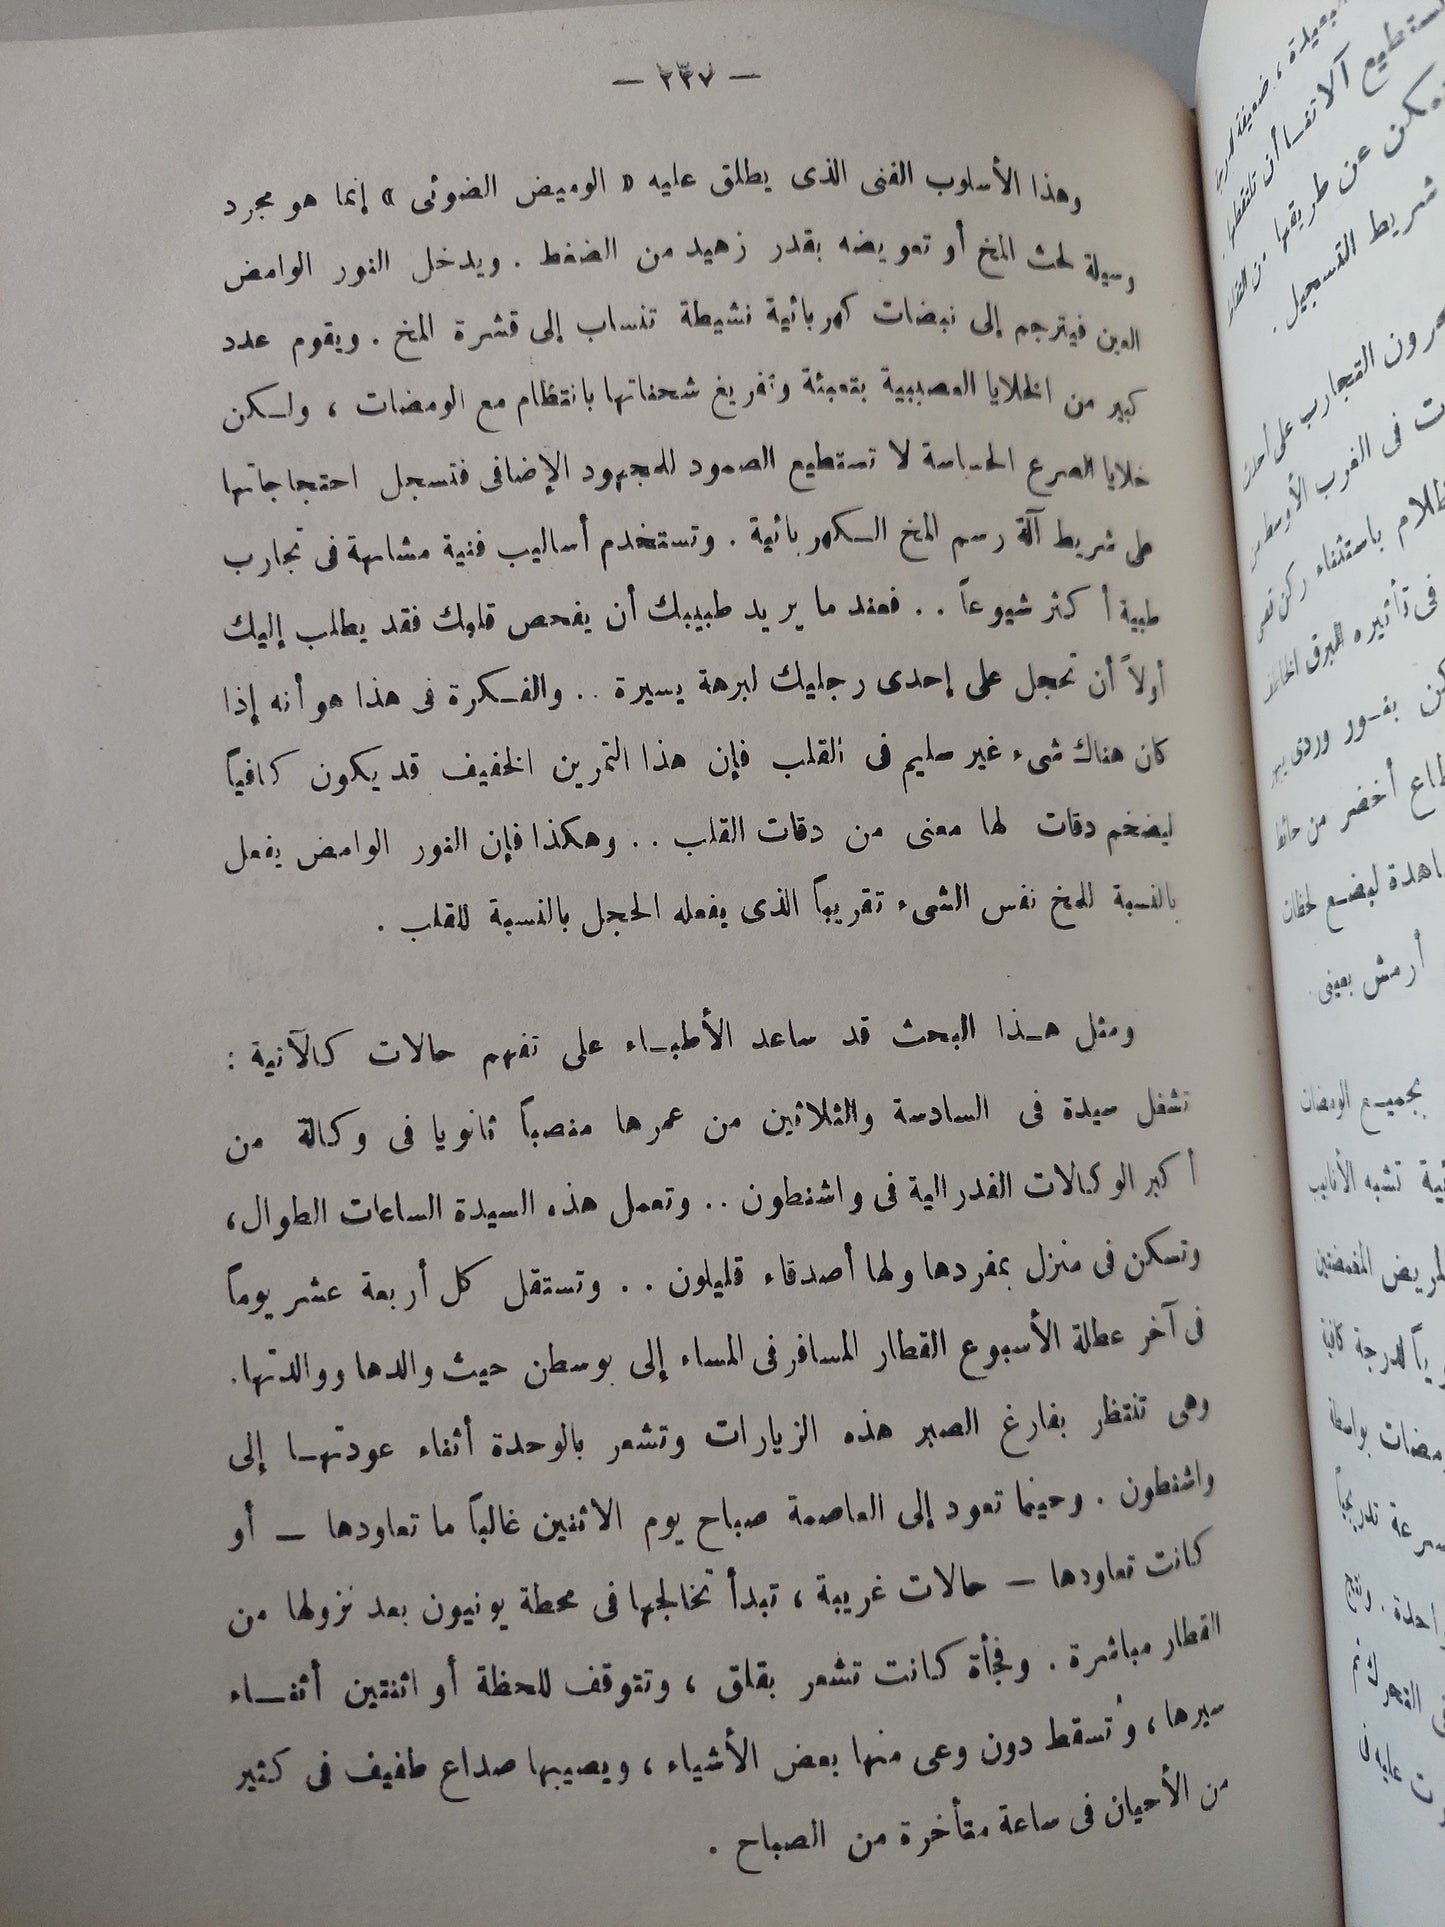 — ٢٣٧ —
وهذا الأسلوب الفنى الذى يطلق عليه « الوميض الضوئى » إنما هو مجرد
وسيلة لحث المخ أو تعويضه بقدر زهيد من الضغط . ويدخل النور الوامض
العين فيترجم إلى نبضات كهربائية نشيطة تنساب إلى قشرة المخ . ويقوم عدد
كبير من الخلايا العصبية بتعبئة وتفريغ شحناتها بانتظام مع الومضات ، ولكن
خلايا الصرع الحساسة لا تستطيع الصمود للمجهود الإضافى فتسجل احتجاجاتها
على شريط آلة رسم المخ الكهربائية . وتستخدم أساليب فنية مشابهة فى تجارب
طبية أكثر شيوعاً . . فعند ما يريد طبيبك أن يفحص قلبك فقد يطلب إليك
أولاً أن تحجل على إحدى رجليك لبرهة يسيرة . . والفكرة فى هذا هو أنه إذا
كان هناك شىء غير سليم فى القلب فإن هذا التمرين الخفيف قد يكون كافياً
ليضخم دقات لها معنى من دقات القلب . . وهكذا فإن النور الوامض يفعل
بالنسبة للمخ نفس الشىء تقريباً الذى يفعله الحجل بالنسبة للقلب .
ومثل هذا البحث قد ساعد الأطباء على تفهم حالات كالآتية :
تشغل سيدة فى السادسة والثلاثين من عمرها منصباً ثانويا فى وكالة من
أكبر الوكالات الفدرالية فى واشنطون . . وتعمل هذه السيدة الساعات الطوال ،
وتسكن فى منزل بمفردها ولها أصدقاء قليلون . . وتستقل كل أربعة عشر يوماً
فى آخر عطلة الأسبوع القطار المسافر فى المساء إلى بوسطن حيث والدها ووالدتها .
وهى تنتظر بفارغ الصبر هذه الزيارات وتشعر بالوحدة أثناء عودتها إلى
واشنطون . وحينما تعود إلى العاصمة صباح يوم الاثنين غالباً ما تعاودها — أو
كانت تعاودها — حالات غريبة ، تبدأ تخالجها فى محطة يونيون بعد نزولها من
القطار مباشرة . وفجأة كانت تشعر بقلق ، وتتوقف للحظة أو اثنتين أثناء
سيرها ، وتُسقط دون وعى منها بعض الأشياء ، ويصيبها صداع طفيف فى كثير
من الأحيان فى ساعة متأخرة من الصباح .
تستطيع
آلاتنا أن تلتقطها
شريط التسجيل .
التجارب على أحدث
فى الغرب الأوسط من
باستثناء ركن قصى
فى تأثيره البرق الخاطف
بنور وردى
أخضر من حائط
لبضع لحظات
أرمش بعينى .
بجميع الومضات
تشبه الأنابيب
المغمضتين
لدرجة كافية
بواسطة
تدريجياً